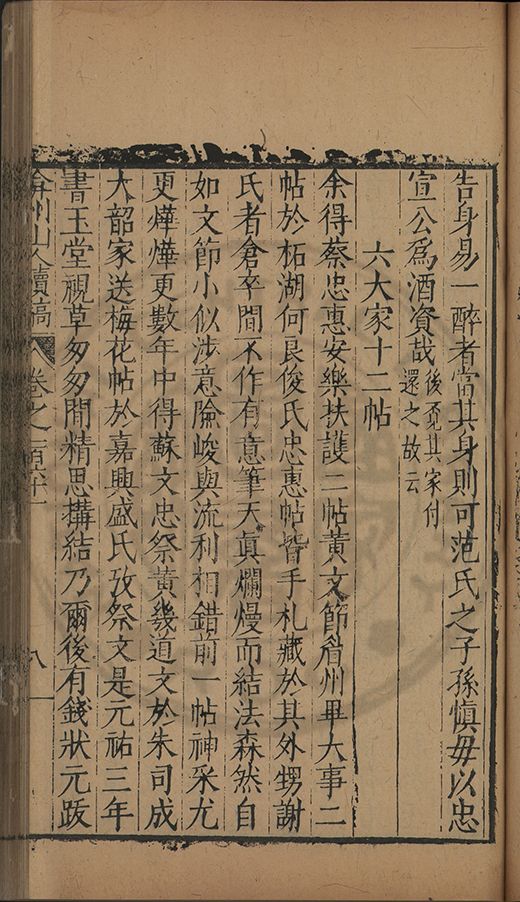 告身易一醉者當其身則可范氏之子孫慎毋以忠
宣公爲酒資哉後覔其家付
還之故云
六大家十二帖
余得蔡忠惠安樂扶護二帖黄文節眉州畢大事二
帖於柘湖何良俊氏忠惠帖皆手札藏於其外甥謝
氏者倉卒間不作有意筆天真爛熳而結法森然自
如文節小似涉意險峻與流利相錯前一帖神采尤
更燁燁更數年中得蘇文忠祭黄幾道文於朱司成
大韶家送梅花帖於嘉興盛氏攷祭文是元祐三年
書玉堂視草匆匆間精思搆結乃爾後有錢狀元跋
弇州山人續稿 卷之一百六十一 八